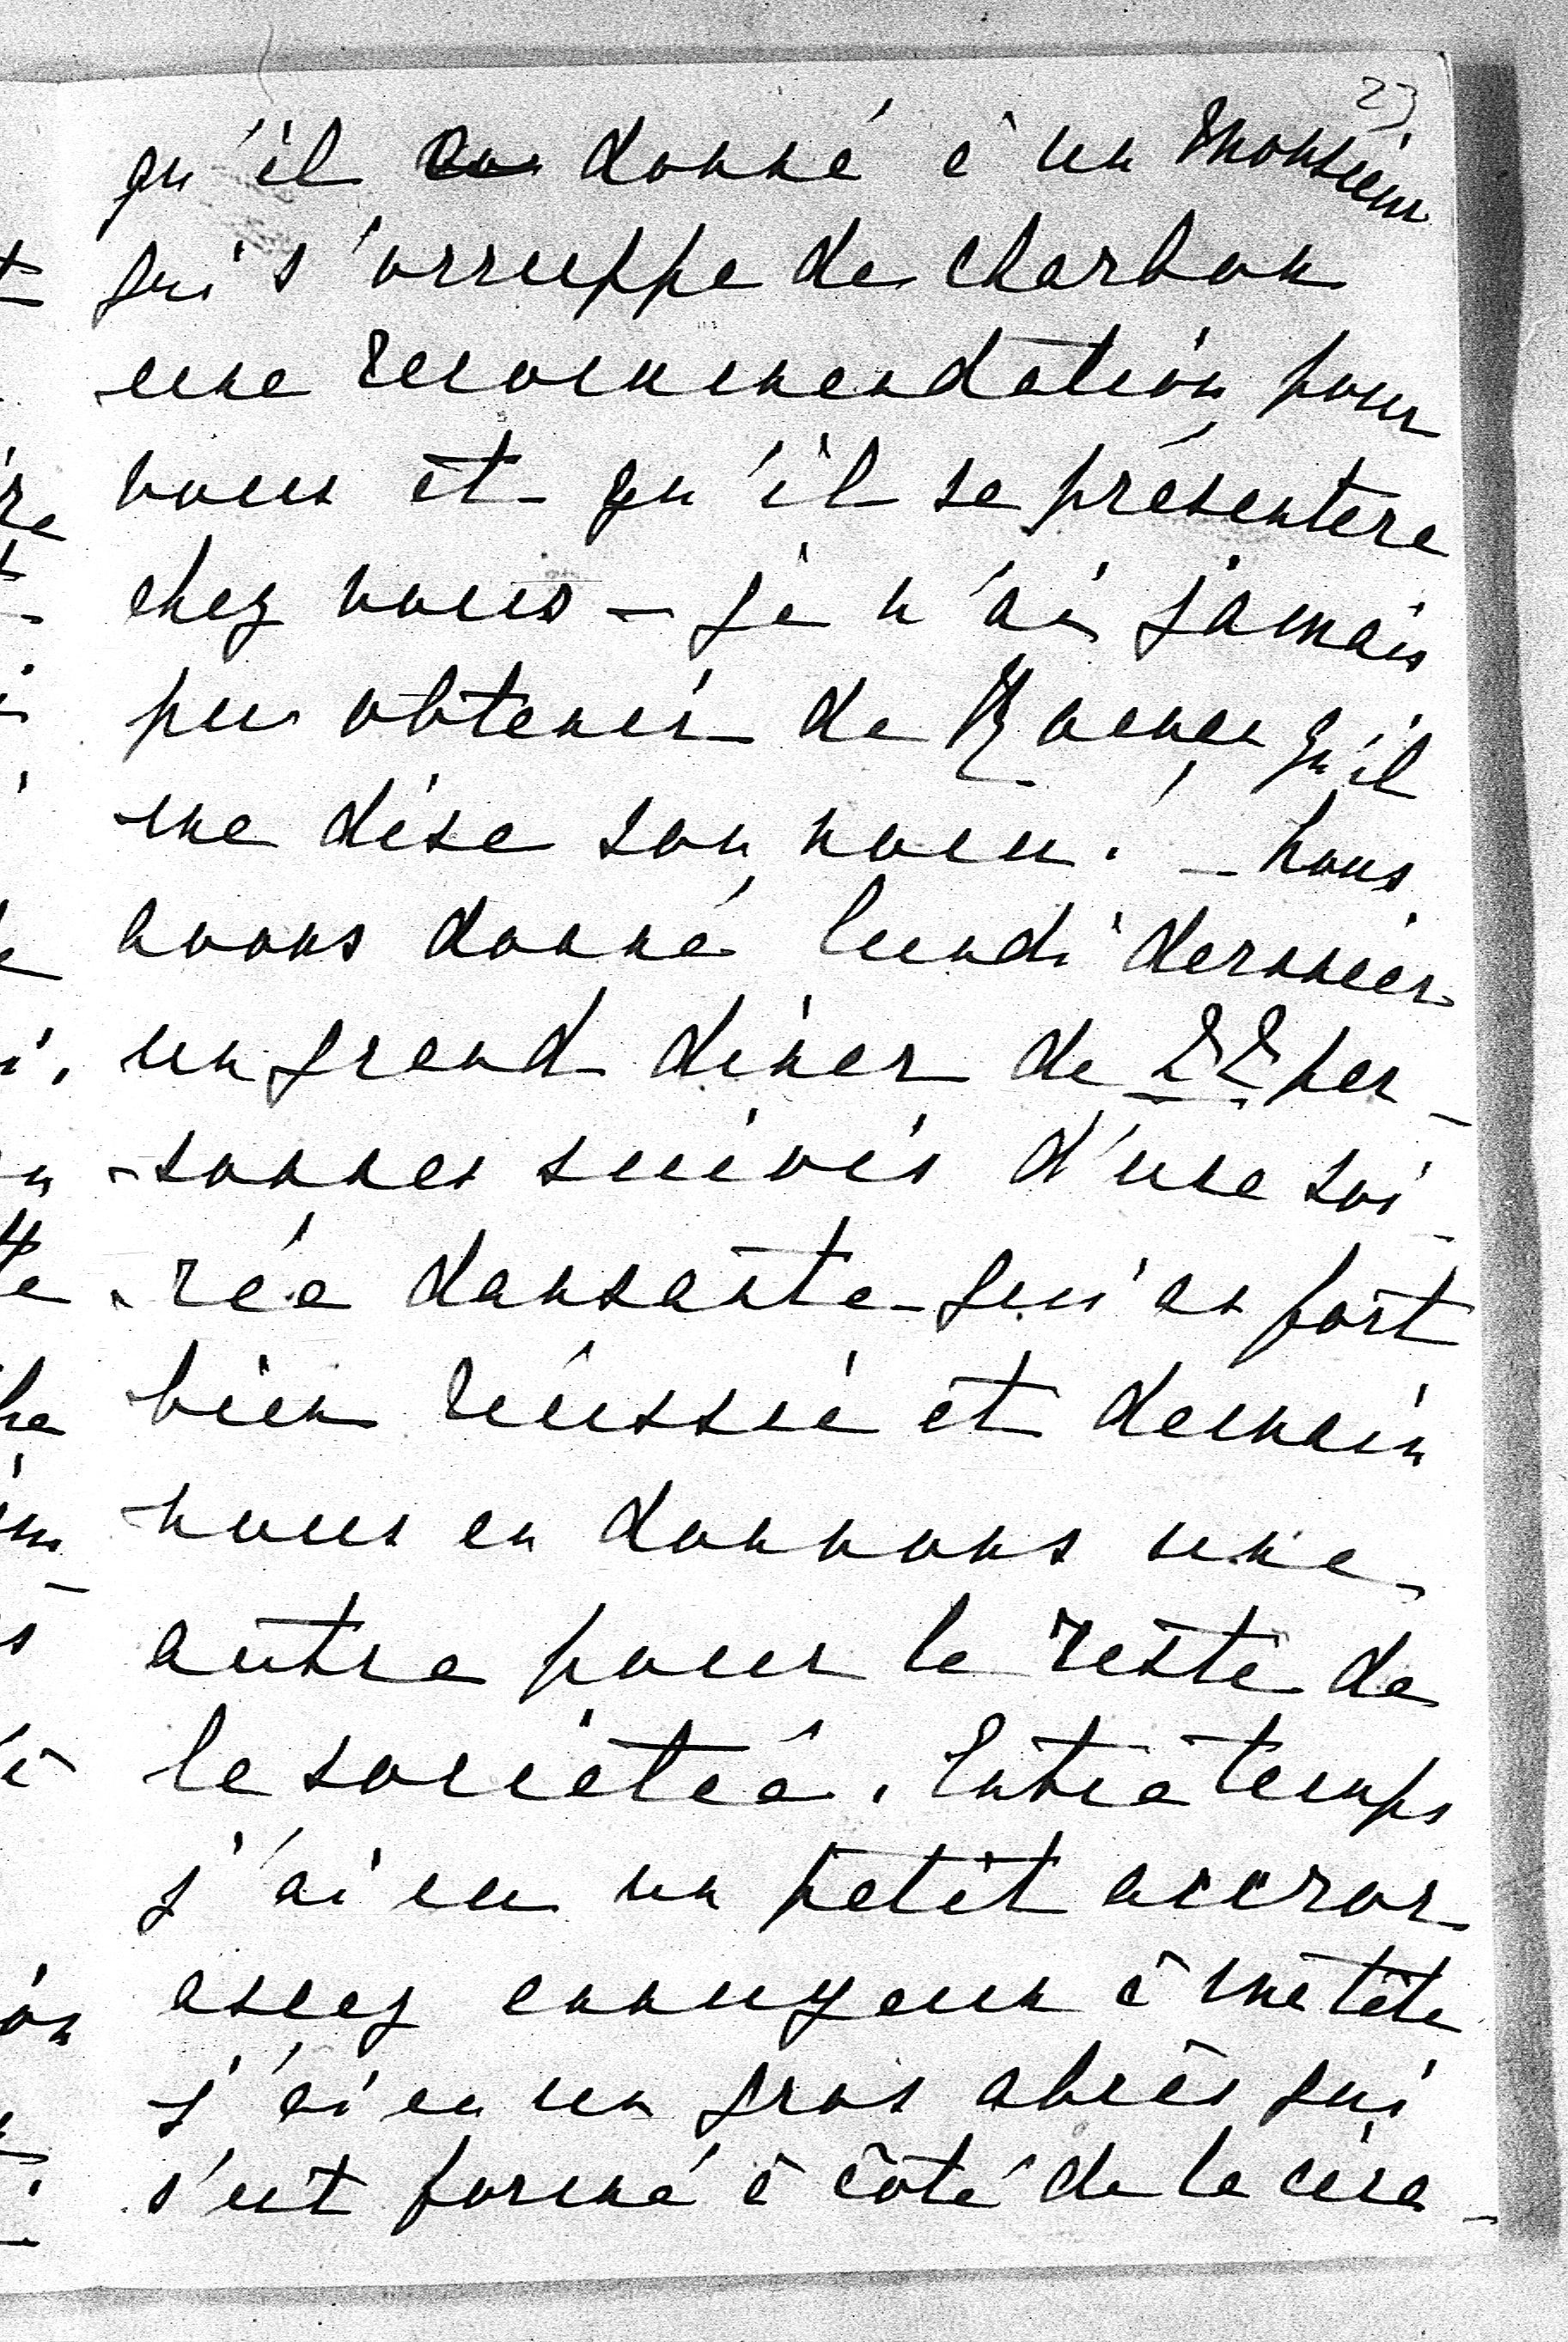 23
qu'il a donné à un Monsieur
qui s'occuppe de charbon
une recommendation pour
vous et qu'il se présentera
chez vous – je n'ai jamais
pu obtenir de qu'il
me dise son nom. – Nous
avons donné lundi dernier
un grand diner de 22 per-
-sonnes suivis d'une soi-
-rée dansante qui a fort
bien réussie et demain
nous en donnons une
autre pour le reste de
la societée. Entre temps
j'ai eu un petit accroc
assez ennuyeux à ma tête
j'ai eu un gros abcès qui
s'est formé à côté de la cica-